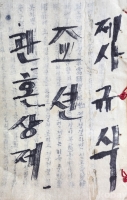 제사규식
조선
관혼상제